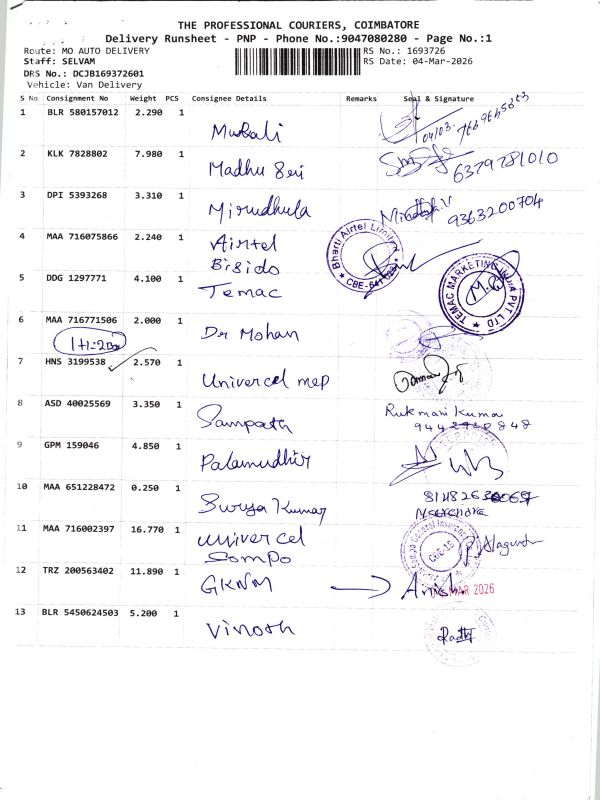 THE PROFESSIONAL COURIERS, COIMBATORE
Delivery Runsheet - PNP - Phone No.:9047080280 - Page No.:1
Route: MO AUTO DELIVERY RS No.: 1693726
Staff: SELVAM RS Date: 04-Mar-2026
DRS No.: DCJB169372601
Vehicle: Van Delivery
S No Consignment No Weight PCS Consignee Details Remarks Seal & Signature
1 BLR 580157012 2.290 1 Murali 04/03
2 KLK 7828802 7.980 1 Madhu Sri 6379781010
3 DPI 5393268 3.310 1 Mirudhula 9363200704
4 MAA 716075866 2.240 1 Airtel Bharti Airtel Limited
Bisido
5 DDG 1297771 4.100 1 Temac TEMAC MARKETING INDIA PVT LTD
6 MAA 716771506 2.000 1 Dr Mohan
1+1=2
7 HNS 3199538 2.570 1 Univercel mep
8 ASD 40025569 3.350 1 Sampath Rukmani Kumar
9 GPM 159046 4.850 1 Palamudhir
10 MAA 651228472 0.250 1 Surya Kumar
11 MAA 716002397 16.770 1 Univercel
Sompo
12 TRZ 200563402 11.890 1 GKNM → MAR 2026
13 BLR 5450624503 5.200 1 Vinosh